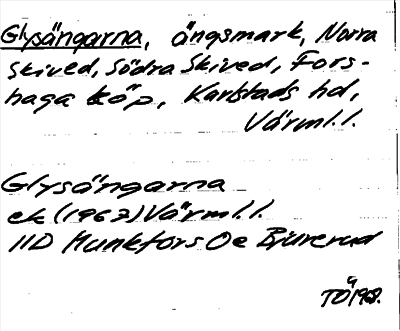 Glysängarna, ängsmark, Norra
Skived, Södra Skived, Fors-
haga köp, Karlstads hd,
Värml.l.
Glysängarna
ek (1962) Värml.l.
11D Munkfors Öe Bjurerud
TÖ 1968.